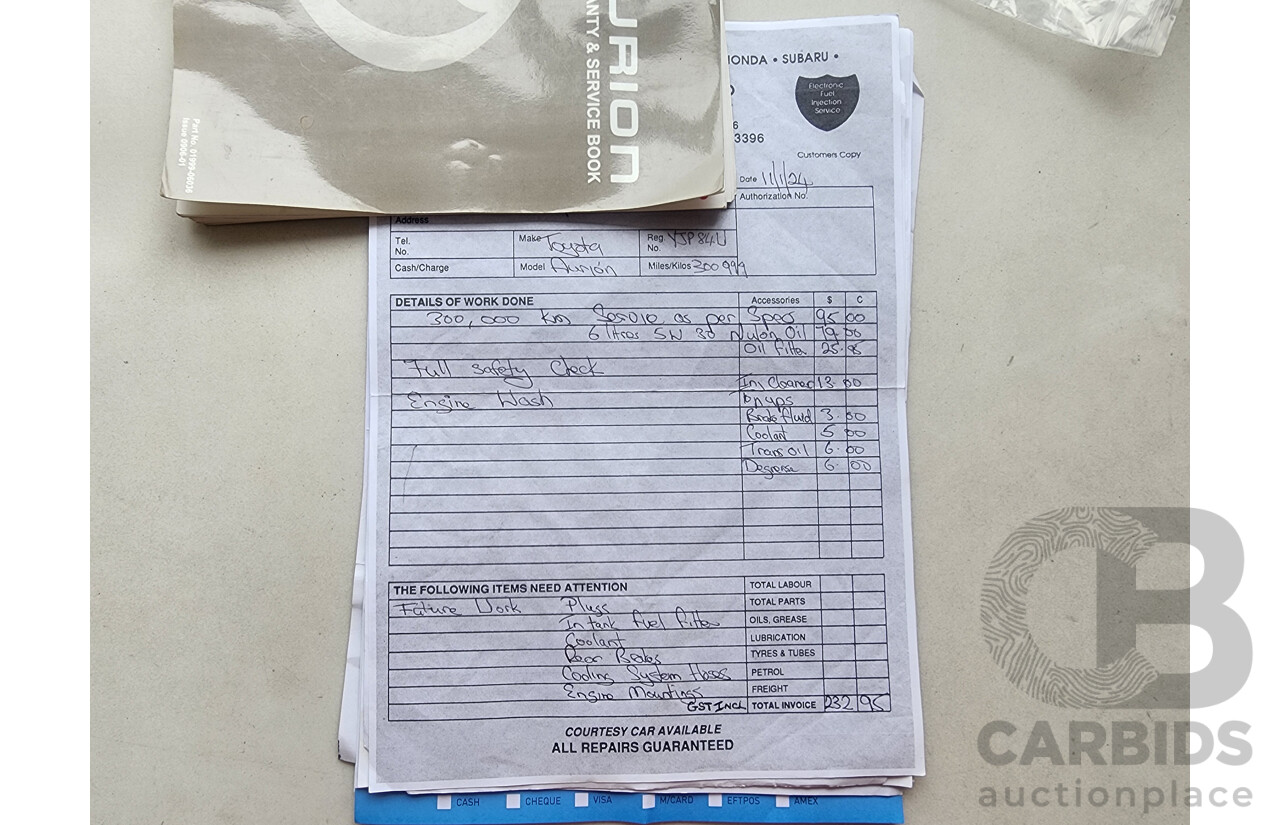 URION
ANTY & SERVICE BOOK
Part No. 01999-06036
Issue 0906-01
ONDA • SUBARU •
Electronic
Fuel
Injection
Service
6
3396
Customers Copy
Date 11/1/24
Authorization No.
Address
Tel.
No.
Make Toyota
Reg.
No.
Cash/Charge
Model Aurion
Miles/Kilos 300 999
DETAILS OF WORK DONE Accessories $ C
300,000 Km Service as per Spec 95 00
6 litres 5W 30 Nulon Oil 79 00
Oil Filter 25.95
Full Safety Check
Inj Cleaner 13.00
Engine Wash Top ups
Brake fluid 3.00
Coolant 5 00
Trans oil 6.00
Degrease 6. 00
THE FOLLOWING ITEMS NEED ATTENTION TOTAL LABOUR
Future Work Plugs TOTAL PARTS
In tank fuel filter OILS, GREASE
Coolant LUBRICATION
Rear Brakes TYRES & TUBES
Cooling System Hoses PETROL
Engine Mountings FREIGHT
GST INCL TOTAL INVOICE 232 95
COURTESY CAR AVAILABLE
ALL REPAIRS GUARANTEED
CASH CHEQUE VISA M/CARD EFTPOS AMEX
CB
CARBIDS
auctionplace